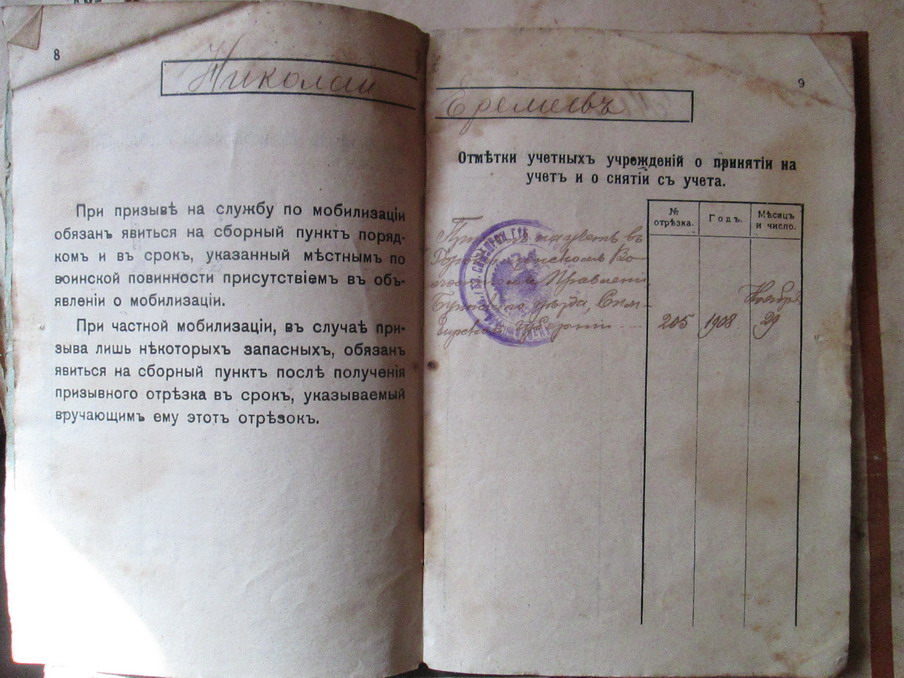 8
Николай
При призывѣ на службу по мобилизаціи
обязан явиться на сборный пункт поряд-
ком и въ срок, указанный мѣстным по
воинской повинности присутствіем въ объ-
явленіи о мобилизаціи.
При частной мобилизаціи, въ случаѣ при-
зыва лишь нѣкоторых запасных, обязан
явиться на сборный пункт послѣ полученія
призывного отрѣзка въ срок, указываемый
вручающимъ ему этот отрѣзок.
9
Еремѣевъ
Отмѣтки учетныхъ учрежденій о принятіи на
учет и о снятіи съ учета.
№ отрѣзка. Годъ. Мѣсяц и число.
на учетъ въ
Волостном Правленіи
уѣзда, Сим-
бирской губерніи
205 1908 Ноября 29